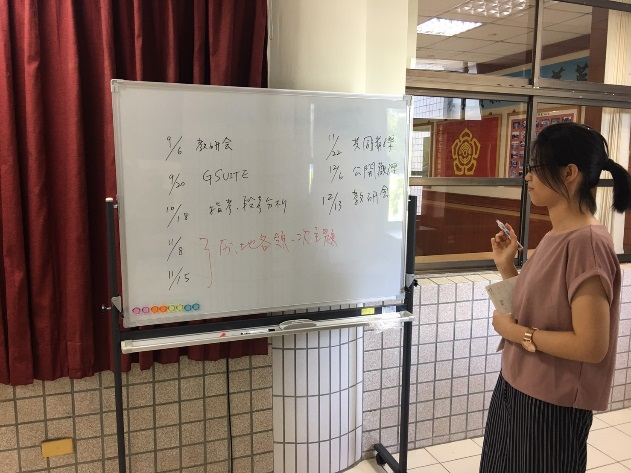 9/6 教研会
9/20 GSUITE
10/18 指考.統考分析
11/8
11/15
历、地各領一次主題
11/22 共同教學
12/6 公開觀課
12/13 教研会